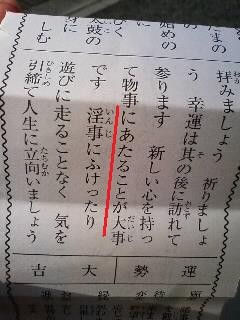 たまの
始めの
く
太鼓の
しむ
拝みましょう　祈りましょ
う　幸運は其の後に訪れて
参ります　新しい心を持っ
て物事にあたることが大事
です　淫事にふけったり
遊びに走ることなく　気を
引締て人生に立向いましょう
運勢大吉